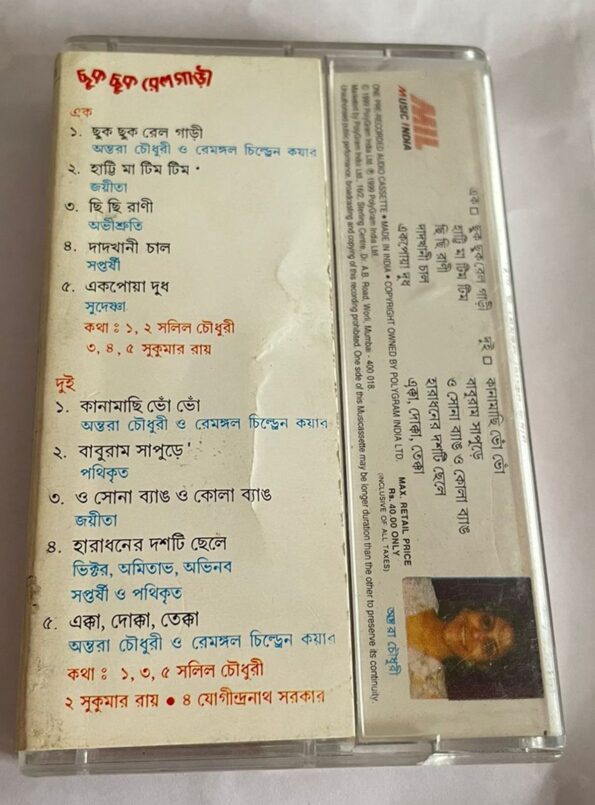 ছুক ছুক রেলগাড়ী
এক
১. ছুক ছুক রেল গাড়ী
অন্তরা চৌধুরী ও রেমঙ্গল চিল্ড্রেন কয়ার
২. হাট্টি মা টিম টিম
জয়ীতা
৩. ছি ছি রাণী
অভীশ্রুতি
৪. দাদখানী চাল
সপ্তর্ষী
৫. একপোয়া দুধ
সুদেষ্ণা
কথা ঃ ১, ২ সলিল চৌধুরী
৩, ৪, ৫ সুকুমার রায়
দুই
১. কানামাছি ভোঁ ভোঁ
অন্তরা চৌধুরী ও রেমঙ্গল চিল্ড্রেন কয়ার
২. বাবুরাম সাপুড়ে
পথিকৃত
৩. ও সোনা ব্যাঙ ও কোলা ব্যাঙ
জয়ীতা
৪. হারাধনের দশটি ছেলে
ভিক্টর, অমিতাভ, অভিনব
সপ্তর্ষী ও পথিকৃত
৫. এক্কা, দোক্কা, তেক্কা
অন্তরা চৌধুরী ও রেমঙ্গল চিল্ড্রেন কয়ার
কথা ঃ ১, ৩, ৫ সলিল চৌধুরী
২ সুকুমার রায় ● ৪ যোগীন্দ্রনাথ সরকার
MIL
MUSIC INDIA
এক □ ছুক ছুক রেল গাড়ী
হাট্টি মা টিম টিম
ছি ছি রাণী
দাদখানী চাল
একপোয়া দুধ
দুই □ কানামাছি ভোঁ ভোঁ
বাবুরাম সাপুড়ে
ও সোনা ব্যাঙ ও কোলা ব্যাঙ
হারাধনের দশটি ছেলে
এক্কা, দোক্কা, তেক্কা
MAX. RETAIL PRICE
Rs. 40.00 ONLY
(INCLUSIVE OF ALL TAXES)
অন্তরা চৌধুরী
ONE PRE-RECORDED AUDIO CASSETTE • MADE IN INDIA • COPYRIGHT OWNED BY POLYGRAM INDIA LTD.
© 1999 PolyGram India Ltd. ℗ 1999 PolyGram India Ltd.
Marketed by PolyGram India Ltd., 16/2, Sterling Centre, Dr. A.B. Road, Worli, Mumbai - 400 018.
Unauthorised public performance, broadcasting and copying of this recording prohibited. One side of this Musicassette may be longer duration than the other to preserve its continuity.